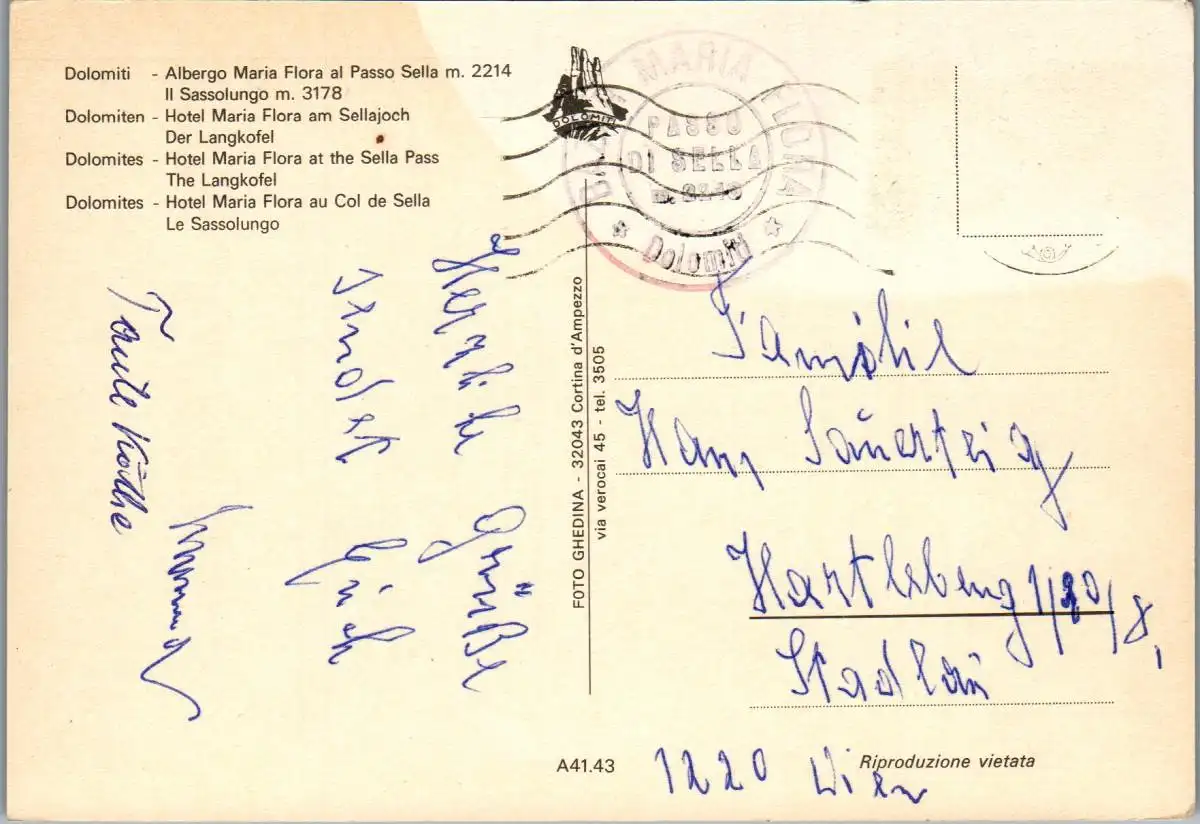 Dolomiti - Albergo Maria Flora al Passo Sella m. 2214
Il Sassolungo m. 3178
Dolomiten - Hotel Maria Flora am Sellajoch
Der Langkofel
Dolomites - Hotel Maria Flora at the Sella Pass
The Langkofel
Dolomites - Hotel Maria Flora au Col de Sella
Le Sassolungo
DOLOMITI
MARIA FLORA
PASSO
DI SELLA
Dolomiti
Herzliche Grüße
sendet Euch
Tante Käthe
FOTO GHEDINA - 32043 Cortina d'Ampezzo
via verocai 45 - tel. 3505
Familie
Hans Sauerteig
1/20/8,
Stadlau
1220 Wien
A41.43
Riproduzione vietata